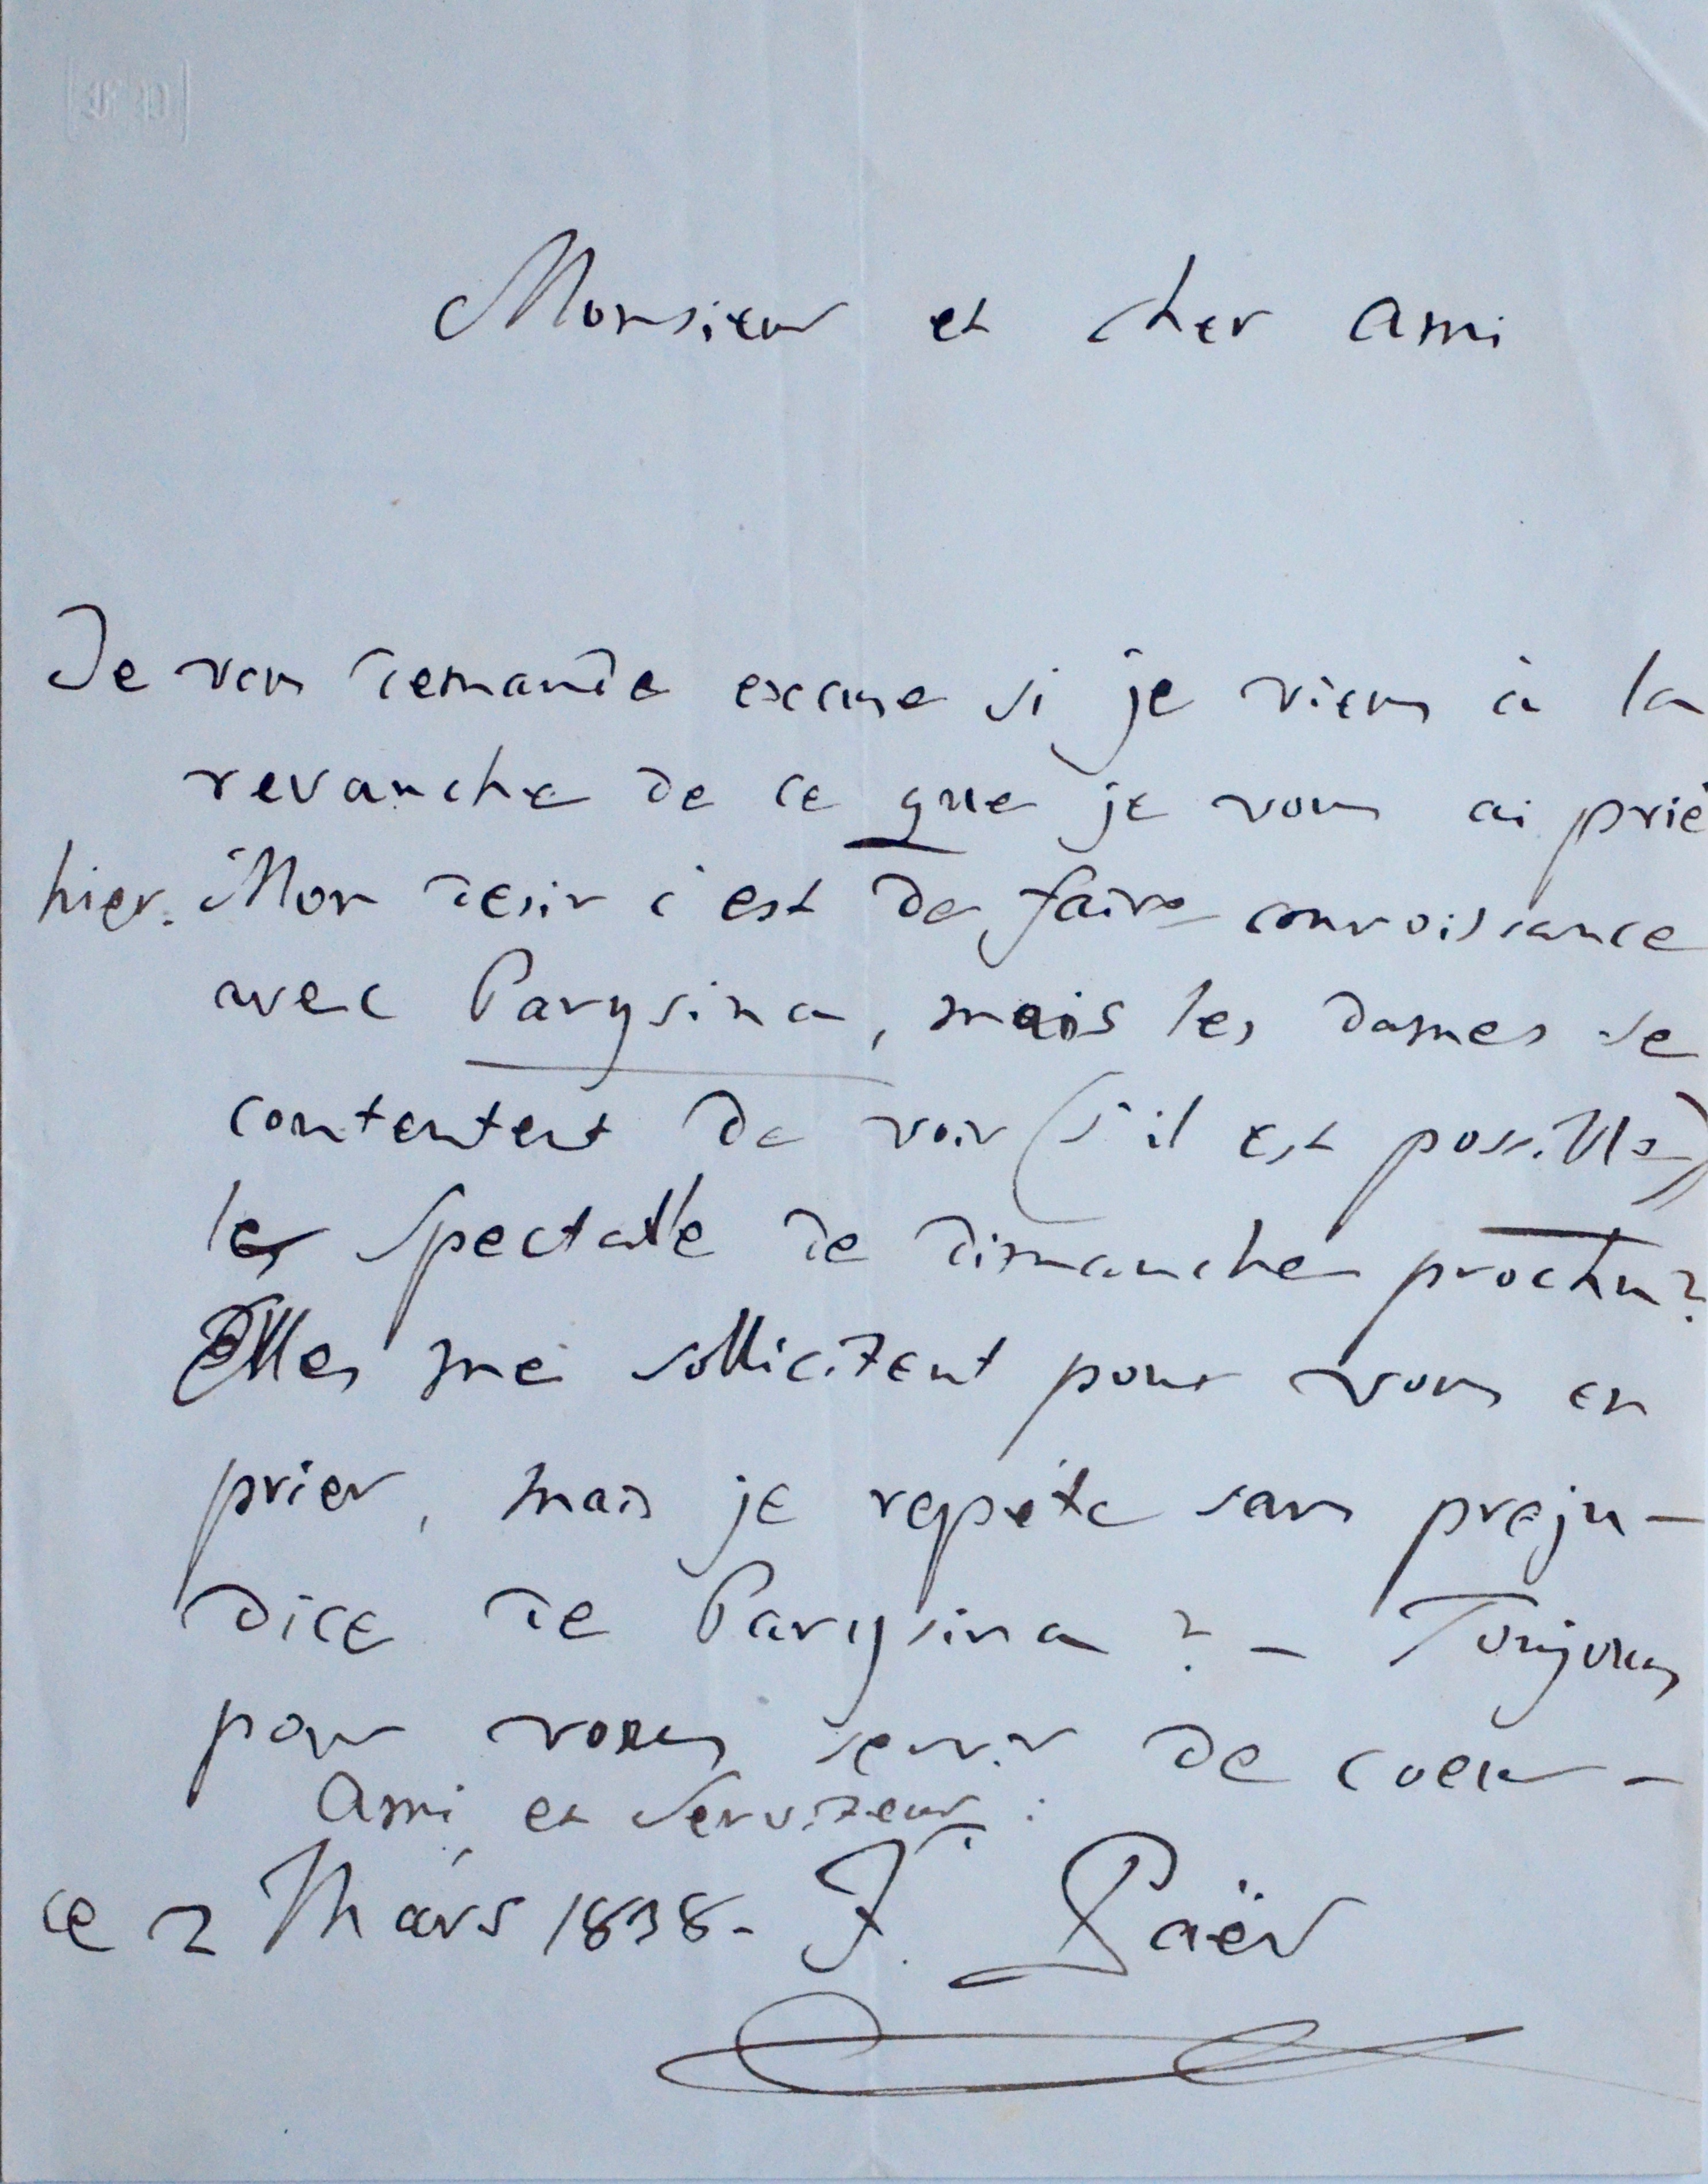 Monsieur et cher ami
Je vous demande excuse si je viens à la
revanche de ce que je vous ai prié
hier. Mon desir c'est de faire connoissance
avec Parysina, mais les dames se
contentent de voir (s'il est possible)
les spectacle de dimanche prochn?
Elles me sollicitent pour vous en
prier, mais je repéte sans preju-
dice de Parysina ? - Toujours
pour vous servir de coeur -
Ami et Serviteur :
ce 2 Mars 1838. F. Paër